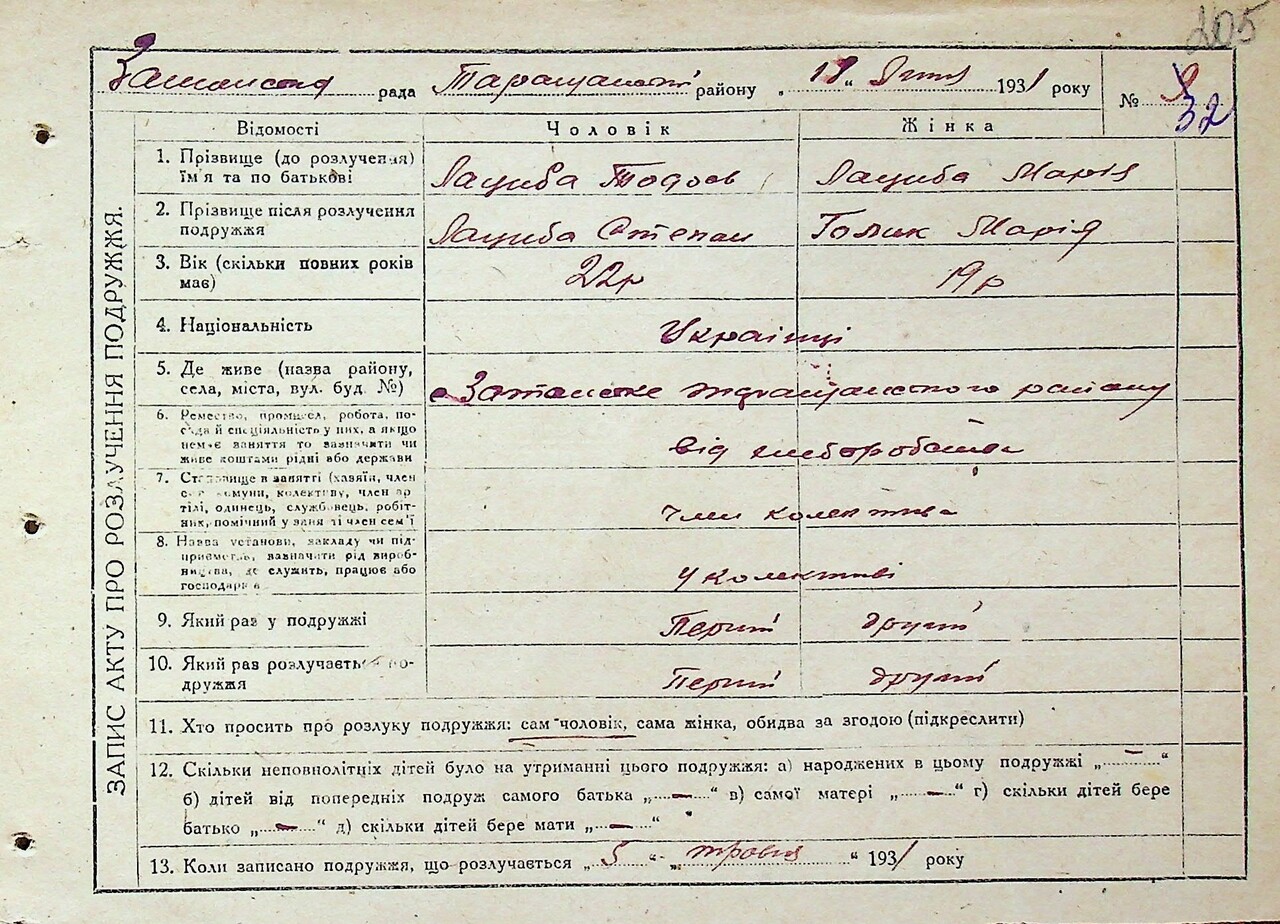 205
рада Таращанської району „ 18 “ 193 1 року
№ 9
32
ЗАПИС АКТУ ПРО РОЗЛУЧЕННЯ ПОДРУЖЖЯ.
Відомості Чоловік Жінка
1. Прізвище (до розлучення) їм'я та по батькові Лациба Лациба Марія
2. Прізвище після розлучення подружжя Лациба Степан Голик Марія
3. Вік (скільки повних років має) 22р 19р
4. Національність Українці
5. Де живе (назва району, села, міста, вул. буд. №) району
6. Ремество, промисел, робота, по-
сада й спеціяльність у них, а якщо
немає заняття то зазначити чи
живе коштами рідні або держави від хліборобства
7. Становище в занятті (хазяїн, член
комуни, колективу, член ар
тілі, одинець, службовець, робіт-
ник, помічний у занятті член сем'ї член колектива
8. Назва установи, закладу чи під-
приємства, зазначати рід вироб-
ництва, де служить, працює або
господарює у колективі
9. Який раз у подружжі Перший другий
10. Який раз розлучається подружжя Перший другий
11. Хто просить про розлуку подружжя: сам чоловік, сама жінка, обидва за згодою (підкреслити)
12. Скільки неповнолітціх дітей було на утриманні цього подружжя: а) народжених в цьому подружжі „ — “
б) дітей від попередніх подруж самого батька „ — “ в) самої матері „ — “ г) скільки дітей бере
батько „ — “ д) скільки дітей бере мати „ — “
13. Коли записано подружжя, що розлучається „ 5 “ „ травня “ 193 1 року